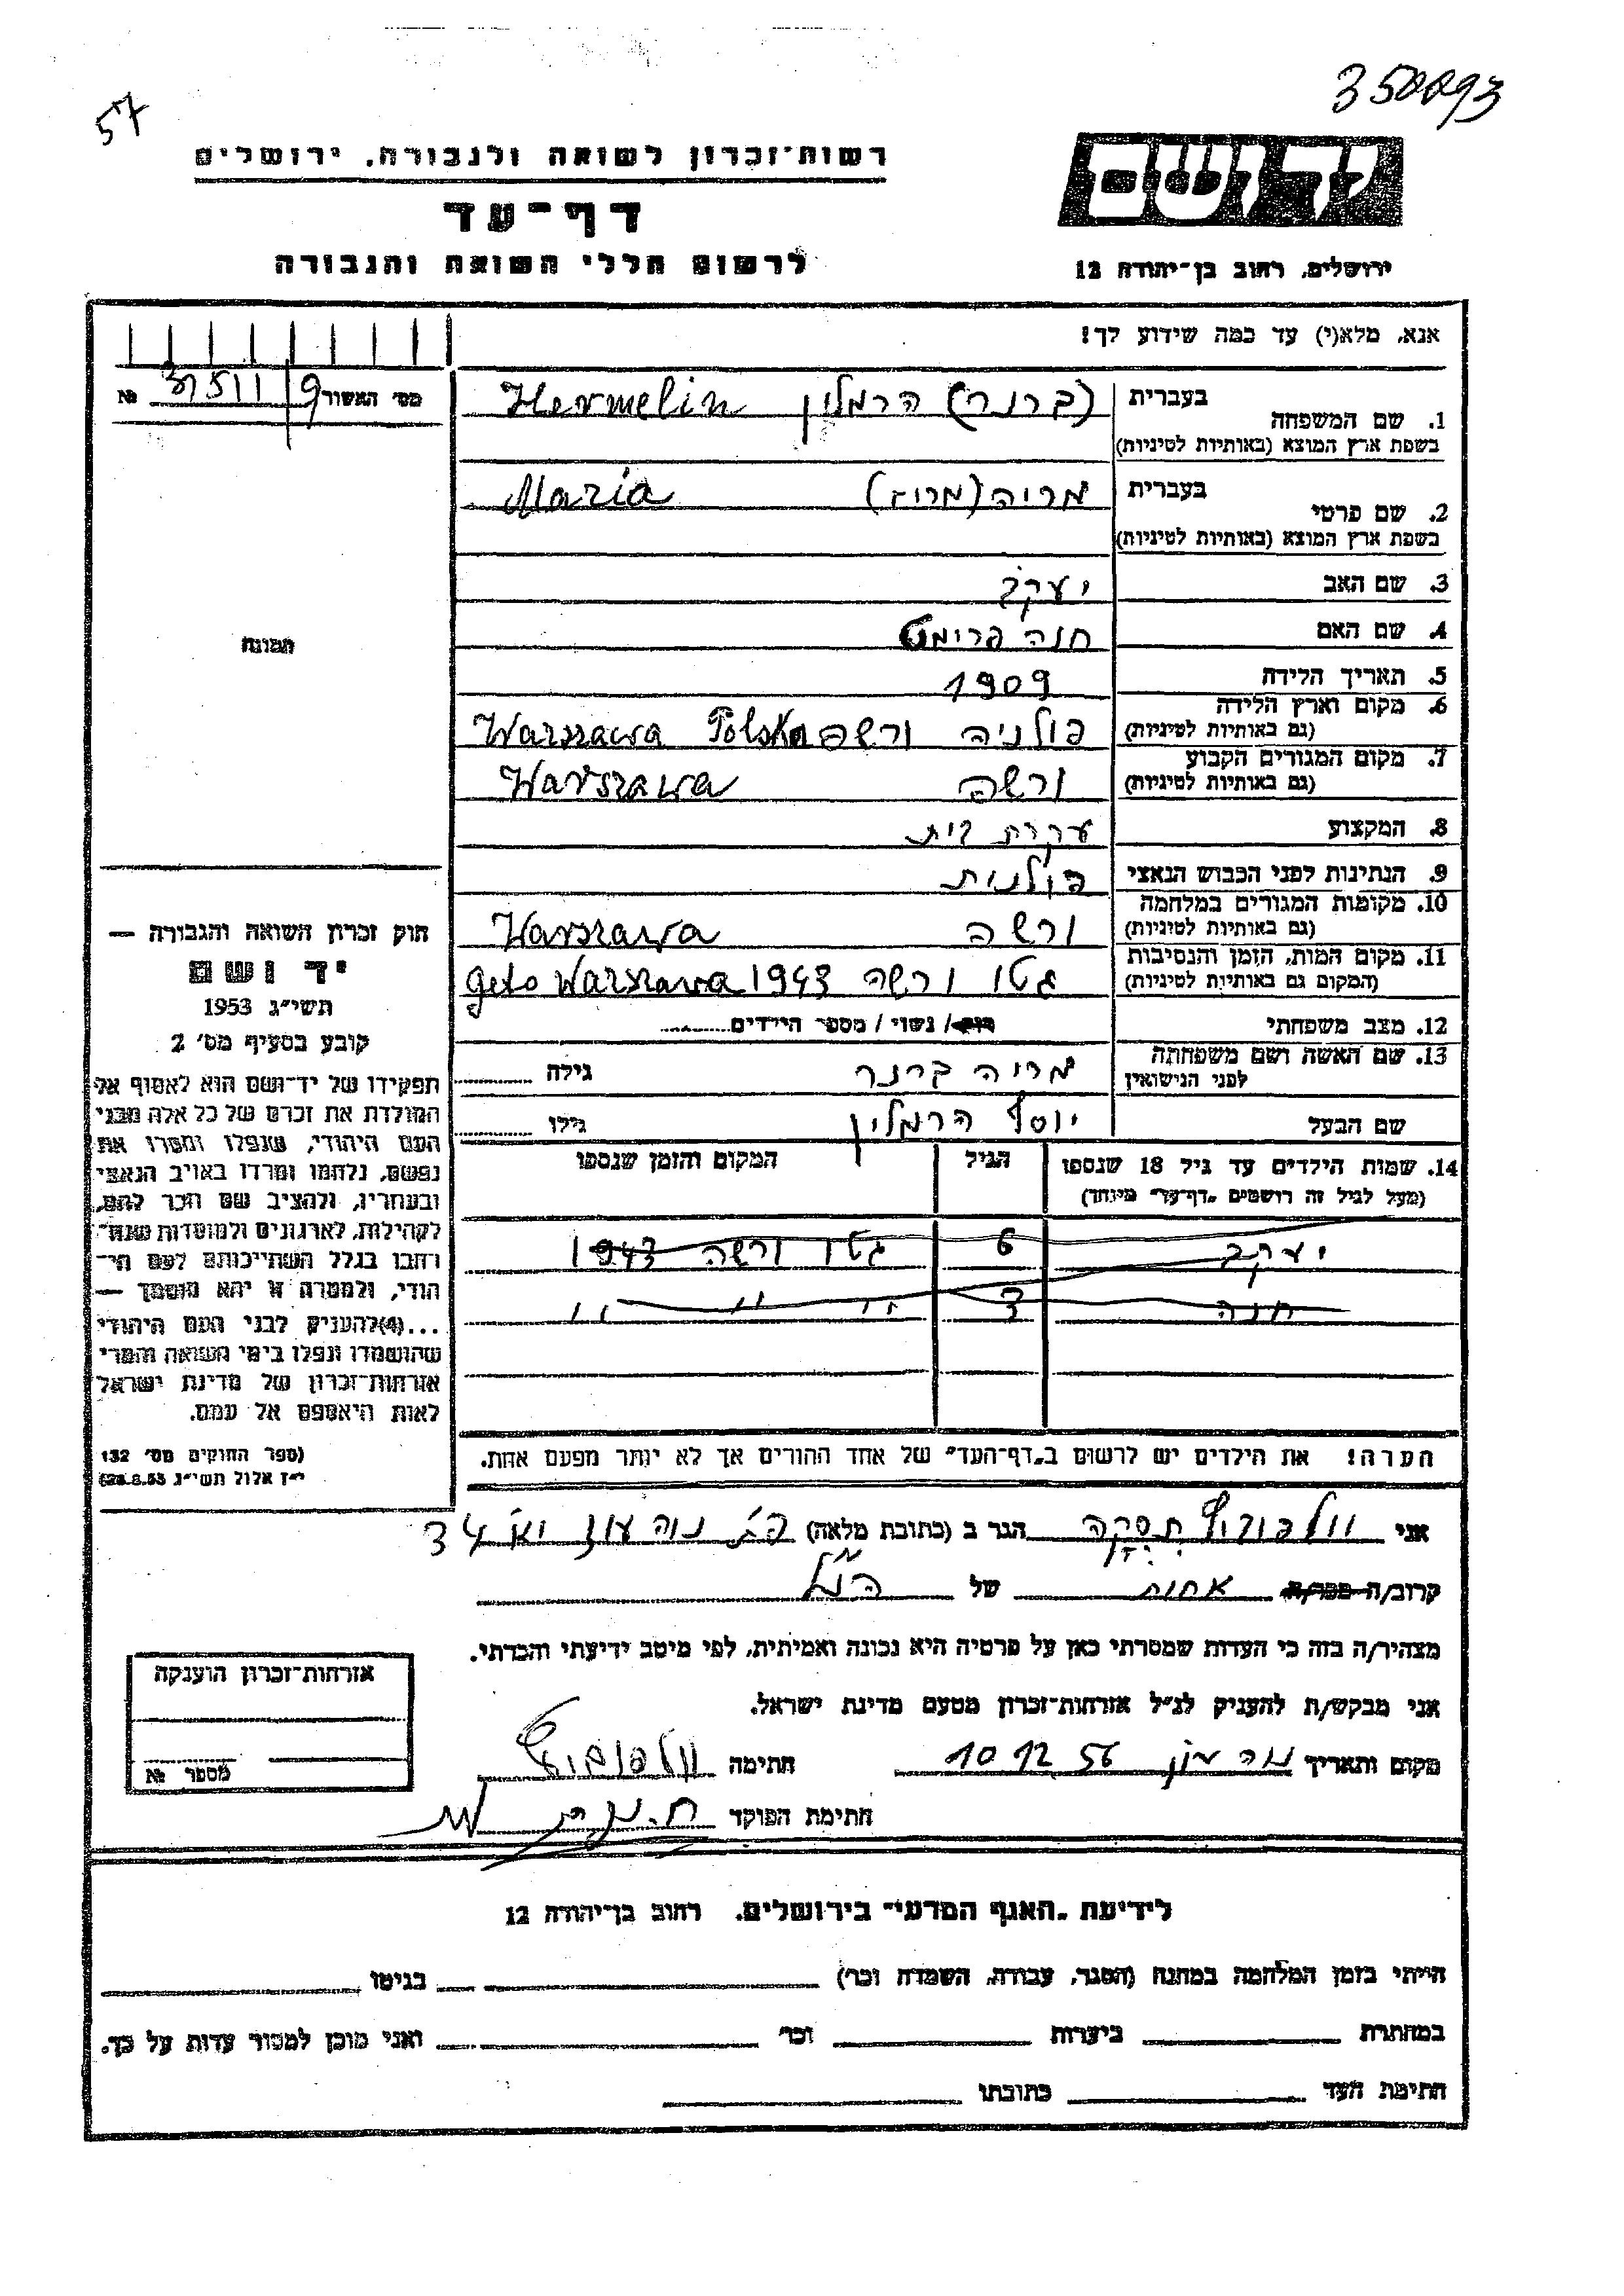 350093
57
יד ושם
רשות־זכרון לשואה ולגבורה, ירושלים
דף־עד
לרשום חללי השואה והגבורה
ירושלים, רחוב בן־יהודה 12
אנא, מלא(י) עד כמה שידוע לך!
מס' האשור № 9/31511
1. שם המשפחה בעברית (ברנר) הרמלין Hermelin
בשפת ארץ המוצא (באותיות לטיניות)
2. שם פרטי בעברית מריה Maria
בשפת ארץ המוצא (באותיות לטיניות)
3. שם האב יעקב
4. שם האם חנה פרימט
5. תאריך הלידה 1909
6. מקום וארץ הלידה פולניה ורשה Warszawa Polska
(גם באותיות לטיניות)
7. מקום המגורים הקבוע ורשה Warszawa
(גם באותיות לטיניות)
8. המקצוע עקרת בית
9. הנתינות לפני הכבוש הנאצי פולנית
10. מקומות המגורים במלחמה ורשה Warszawa
(גם באותיות לטיניות)
11. מקום המות, הזמן והנסיבות גטו ורשה 1943 geto Warszawa
(המקום גם באותיות לטיניות)
12. מצב משפחתי רווק/ נשוי/ מספר הילדים
13. שם האשה ושם משפחתה מריה ברנר גילה
לפני הנישואין
שם הבעל יוסף הרמלין גילו
14. שמות הילדים עד גיל 18 שנספו הגיל המקום והזמן שנספו
(מעל לגיל זה רושמים „דף־עד" מיוחד)
יעקב 6 גטו ורשה 1943
חנה 3 " " " "
הערה! את הילדים יש לרשום ב„דף־העד" של אחד ההורים אך לא יותר מפעם אחת.
תמונה
חוק זכרון השואה והגבורה —
יד ושם
תשי"ג 1953
קובע בסעיף מס' 2
תפקידו של יד־ושם הוא לאסוף אל
המולדת את זכרם של כל אלה מבני
העם היהודי, שנפלו ומסרו את
נפשם, נלחמו ומרדו באויב הנאצי
ובעוזריו, ולהציב שם וזכר להם,
לקהילות, לארגונים ולמוסדות שנח־
רבו בגלל השתייכותם לעם הי־
הודי, ולמטרה זו יהא מוסמך —
...(4) להעניק לבני העם היהודי
שהושמדו ונפלו בימי השואה והמרי
אזרחות־זכרון של מדינת ישראל
לאות היאספם אל עמם.
(ספר החוקים מס' 132
י"ז אלול תשי"ג 28.8.53)
אני הגר ב (כתובת מלאה) נוה עוז 34
קרוב/ה מכר/ה אחות של הנ"ל
מצהיר/ה בזה כי העדות שמסרתי כאן על פרטיה היא נכונה ואמיתית, לפי מיטב ידיעתי והכרתי.
אני מבקש/ת להעניק לנ"ל אזרחות־זכרון מטעם מדינת ישראל.
מקום ותאריך 10 12 56 חתימה
חתימת הפוקד
אזרחות־זכרון הוענקה
מספר №
לידיעת „האגף המדעי" בירושלים, רחוב בן־יהודה 12
הייתי בזמן המלחמה במחנה (הסגר, עבודה, השמדה וכו') בגיטו
במחתרת ביערות וכו' ואני מוכן למסור עדות על כך.
חתימת העד כתובתו